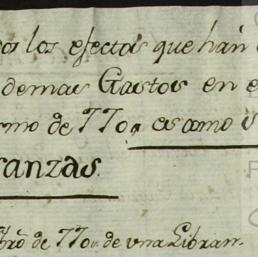 los efectos que han
demas Gastos en e
rmo de 770, es como s
ranzas.
bró de 770, de vna Libran-